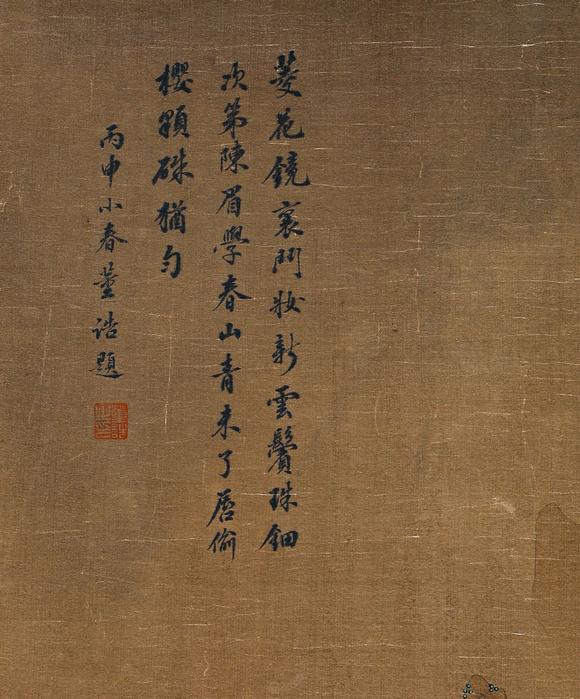 菱花鏡裏鬥妝新雲鬢珠鈿
次第陳眉學春山青未了唇偷
櫻顆硃猶勻
丙申小春董誥題